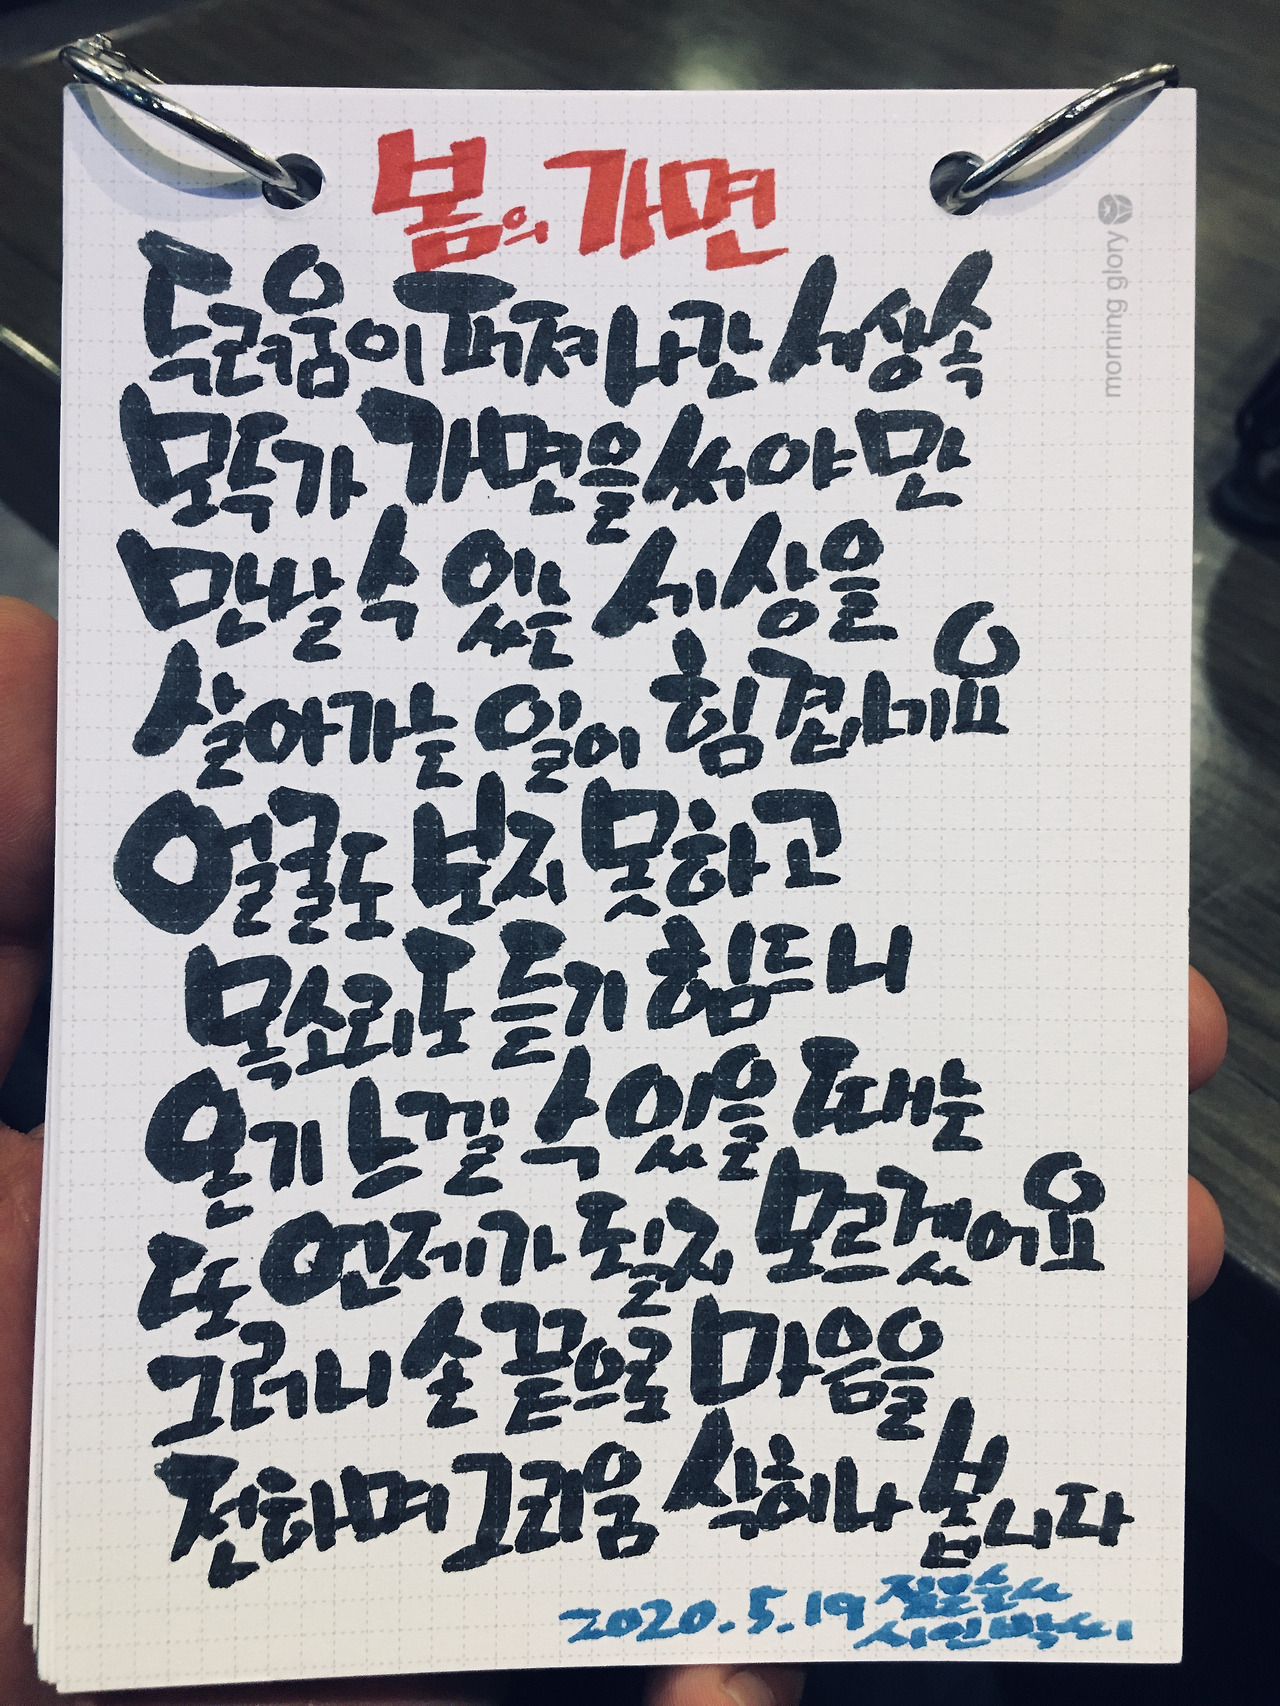 봄의 가면
두려움이 퍼져나간 세상속
모두가 가면을 써야만
만날 수 있는 세상을
살아가는 일이 힘겹네요
얼굴도 보지 못하고
목소리도 듣기 힘드니
온기 느낄 수 있을 때는
또 언제가 될지 모르겠어요
그러니 손 끝으로 마음을
전하며 그리움 삭히나 봅니다
2020.5.19
시인박씨
morning glory